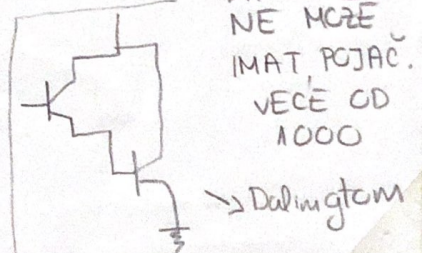 NE MOZE
IMAT POJAČ.
VECÉ OD
1000
→ Dalingtom